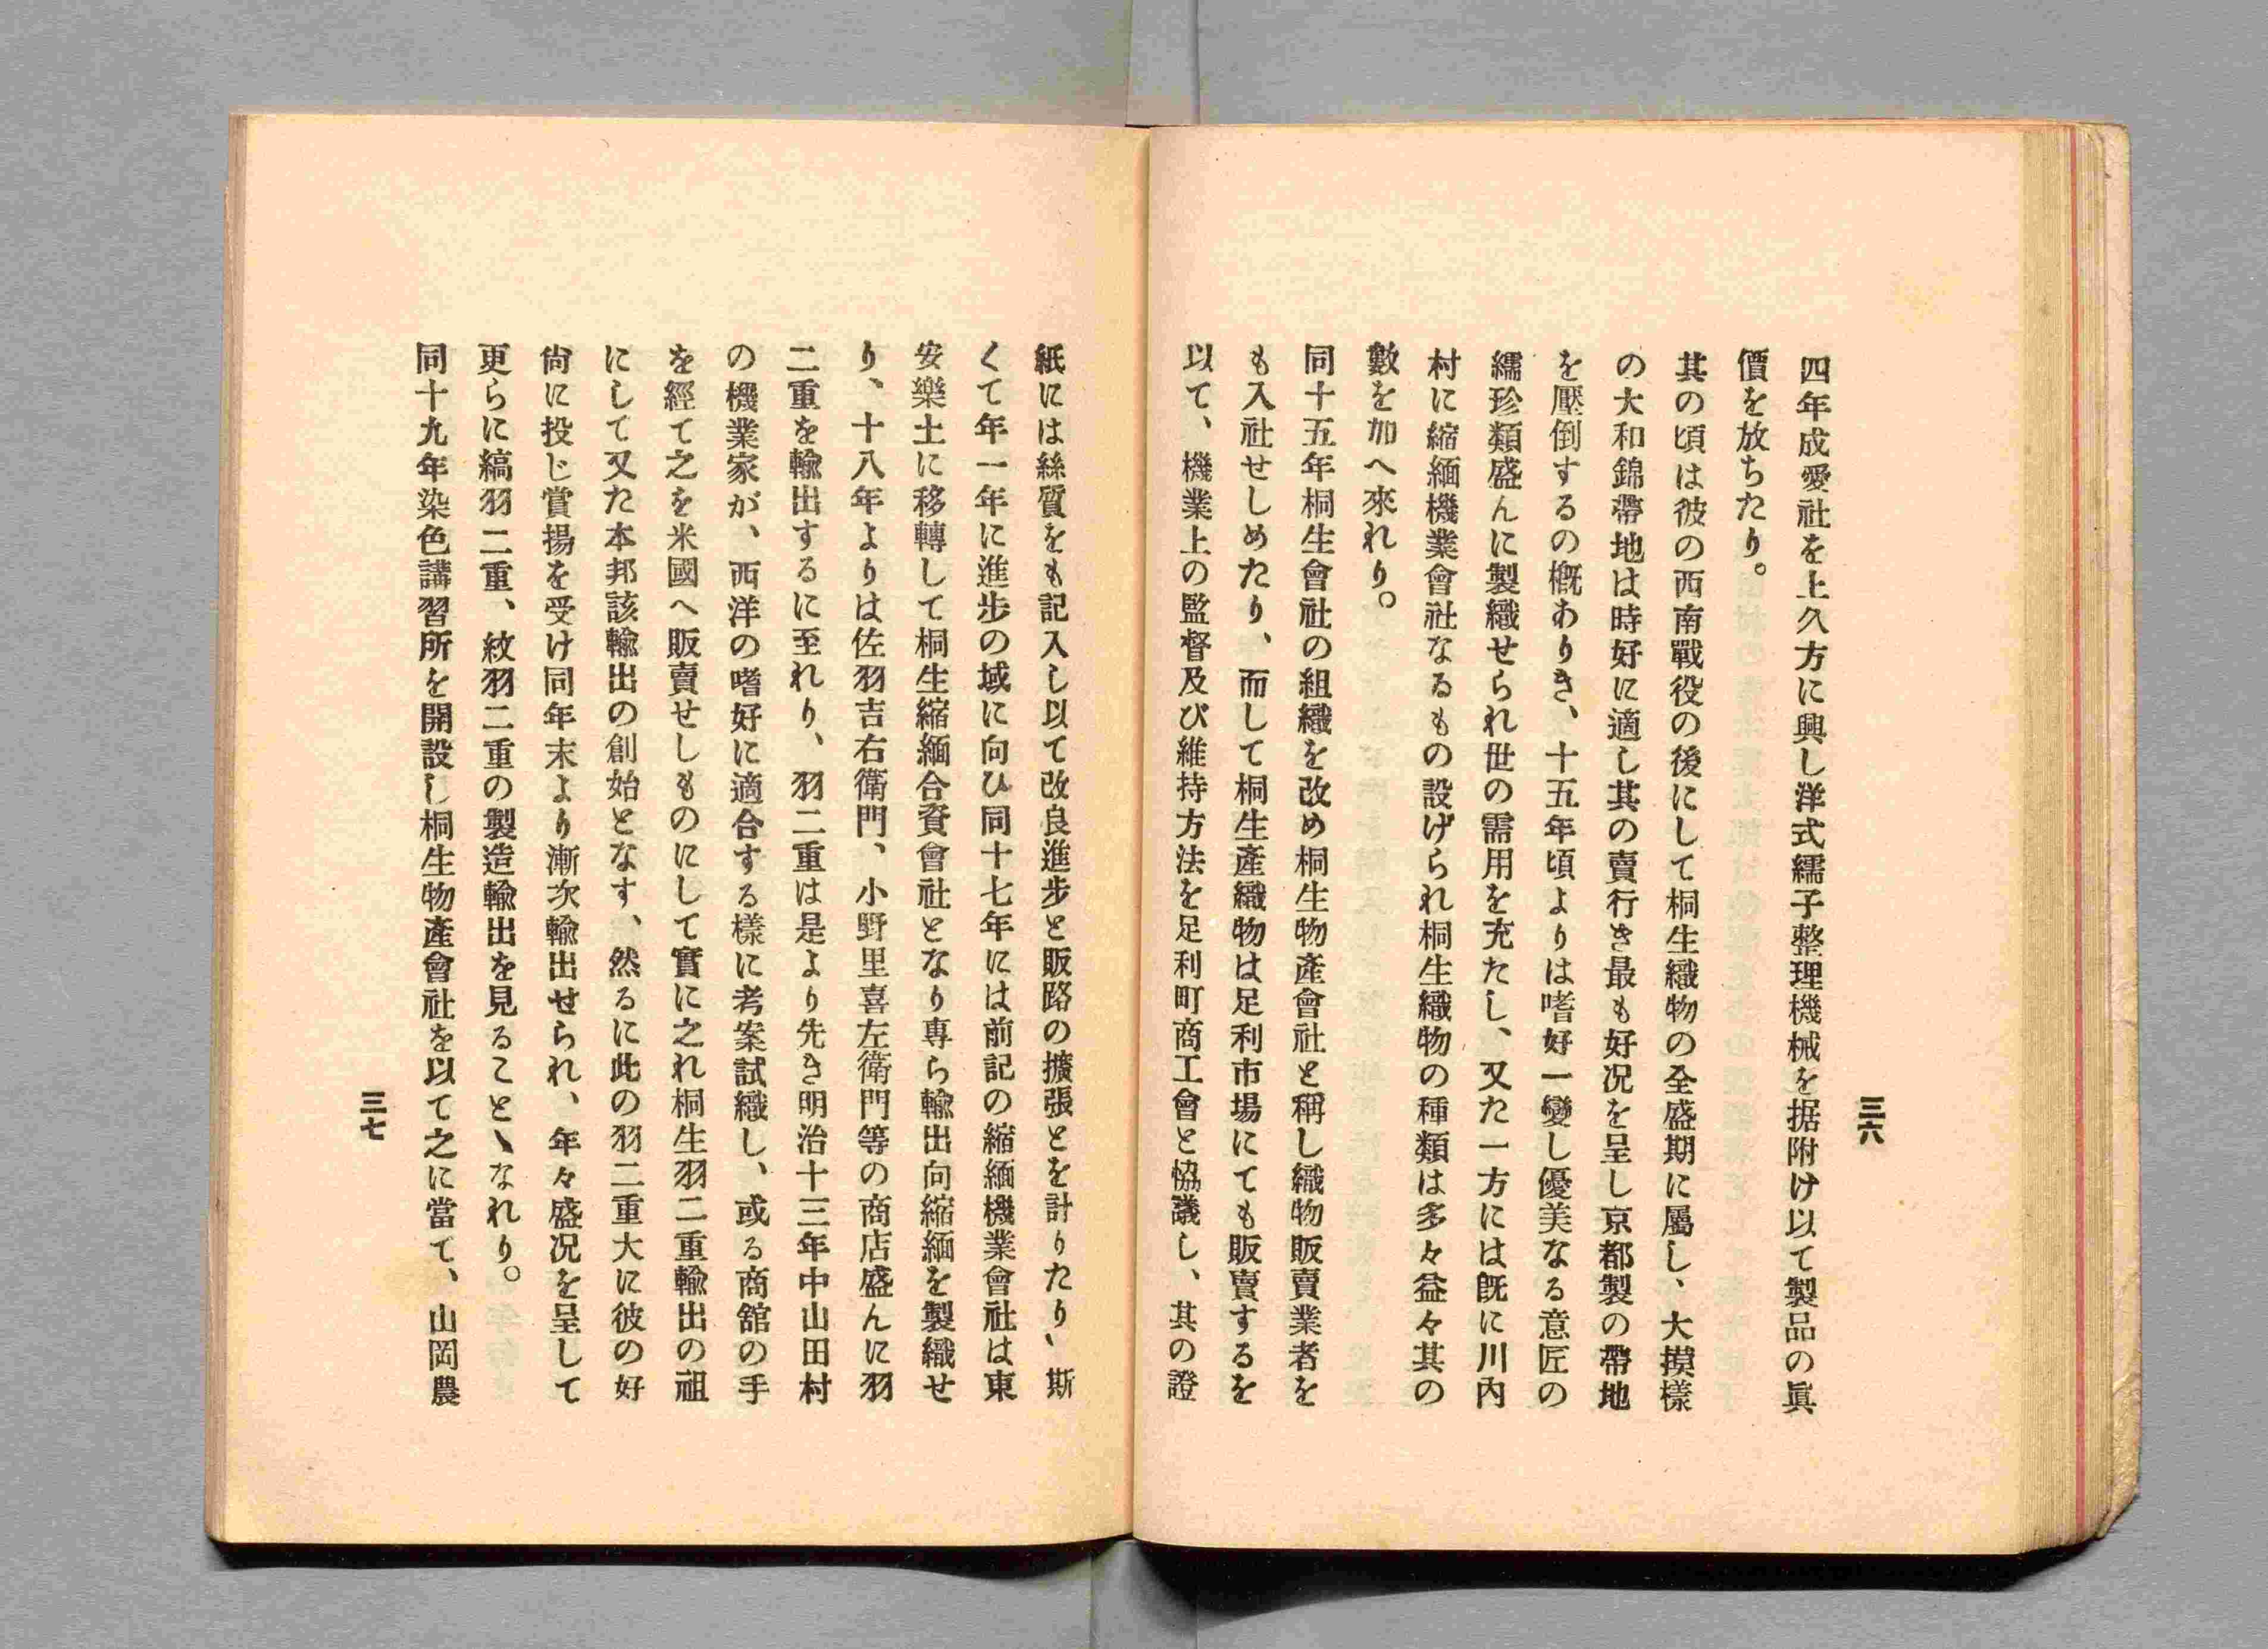 三六
四年成愛社を上久方に興し洋式繻子整理機械を据附け以て製品の眞
價を放ちたり。
其の頃は彼の西南戰役の後にして桐生織物の全盛期に屬し、大摸樣
の大和錦帶地は時好に適し其の賣行き最も好况を呈し京都製の帶地
を壓倒するの槪ありき、十五年頃よりは嗜好一變し優美なる意匠の
繻珍類盛んに製織せられ世の需用を充たし、又た一方には旣に川內
村に縮緬機業會社なるもの設げられ桐生織物の種類は多々益々其の
數を加へ來れり。
同十五年桐生會社の組織を改め桐生物產會社と稱し織物販賣業者を
も入社せしめたり、而して桐生產織物は足利市場にても販賣するを
以て、機業上の監督及び維持方法を足利町商工會と恊議し、其の證
紙には絲質をも記入し以て改良進步と販路の擴張とを計りたり、斯
くて年一年に進步の域に向ひ同十七年には前記の縮緬機業會社は東
安樂土に移轉して桐生縮緬合資會社となり專ら輸出向縮緬を製織せ
り、十八年よりは佐羽吉右衛門、小野里喜左衛門等の商店盛んに羽
二重を輸出するに至れり、羽二重は是より先き明治十三年中山田村
の機業家が、西洋の嗜好に適合する樣に考案試織し、或る商舘の手
を經て之を米國へ販賣せしものにして實に之れ桐生羽二重輸出の祖
にして又た本邦該輸出の創始となす、然るに此の羽二重大に彼の好
尙に投じ賞揚を受け同年末より漸次輸出せられ、年々盛况を呈して
更らに縞羽二重、紋羽二重の製造輸出を見ることヽなれり。
同十九年染色講習所を開設し桐生物產會社を以て之に當て、山岡農
三七